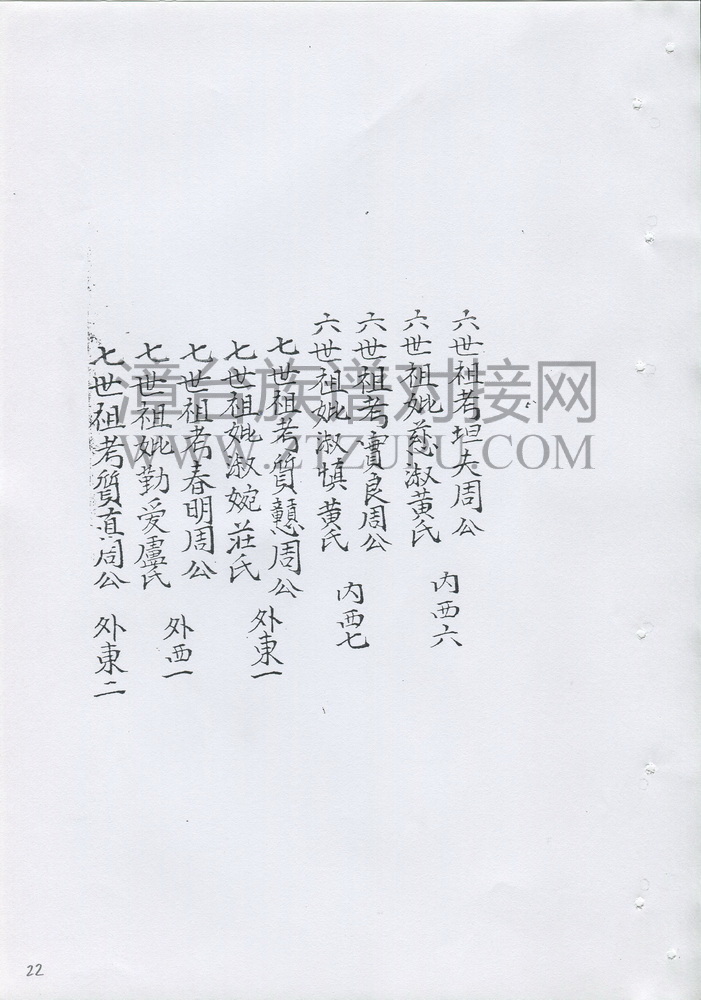 六世祖考坦夫周公
六世祖妣慈淑黄氏
内西六
六世祖考實良周公
六世祖妣淑慎黄氏
内西七
七世祖考質戇周公
七世祖妣淑婉莊氏
外東一
七世祖考春明周公
七世祖妣勤爱盧氏
外西一
七世祖考質直周公
外東二
漳台族谱对接网
WWW.ZTZUPU.COM
22